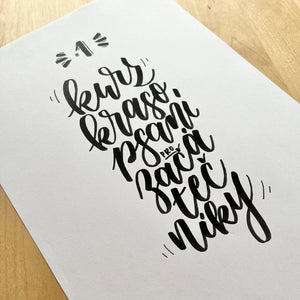 1
kurz
kraso
psaní
PRO
začá
teč
níky